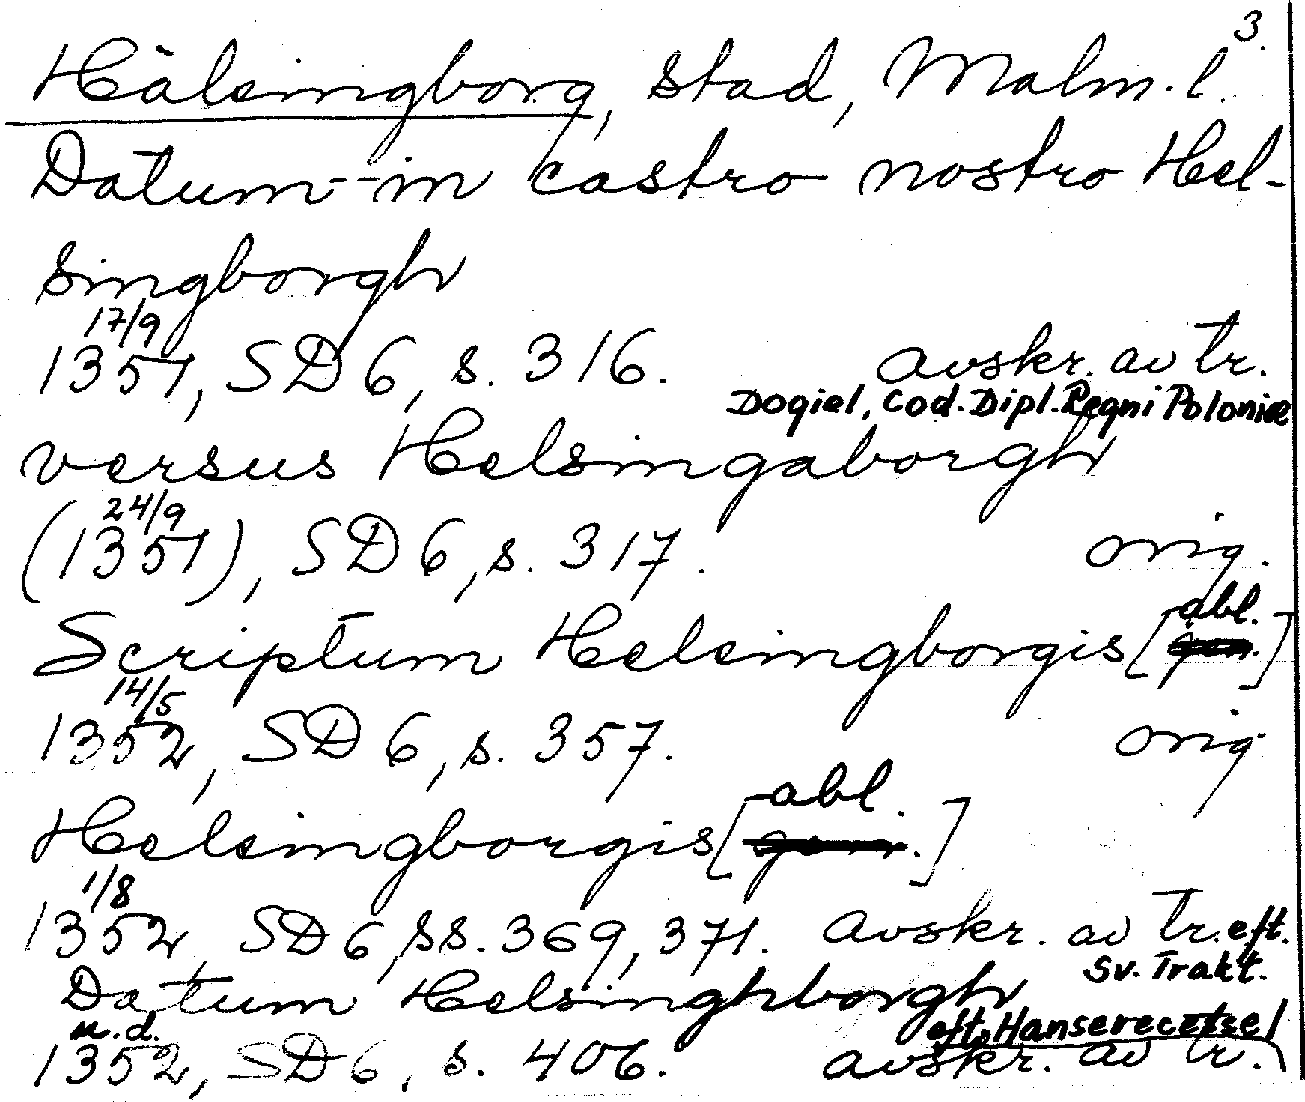 3.
Hälsingborg, stad, Malm. l.
Datum -- in castro nostro Hel-
singborgh
17/9
1351, SD 6, s. 316. avskr. av tr.
Dogiel, Cod. Dipl. Regni Poloniæ
versus Helsingaborgh
24/9
(1351), SD 6, s. 317. orig.
abl.
Scriptum Helsingborgis [gen.]
14/5
1352, SD 6, s. 357. orig
abl.
Helsingborgis [gen.]
1/8
1352, SD 6, ss. 369, 371. avskr. av tr. eft.
Sv. Trakt.
Datum Helsinghborgh
u.d. eft. Hanserecesse
1352, SD 6, s. 406. avskr. av tr.